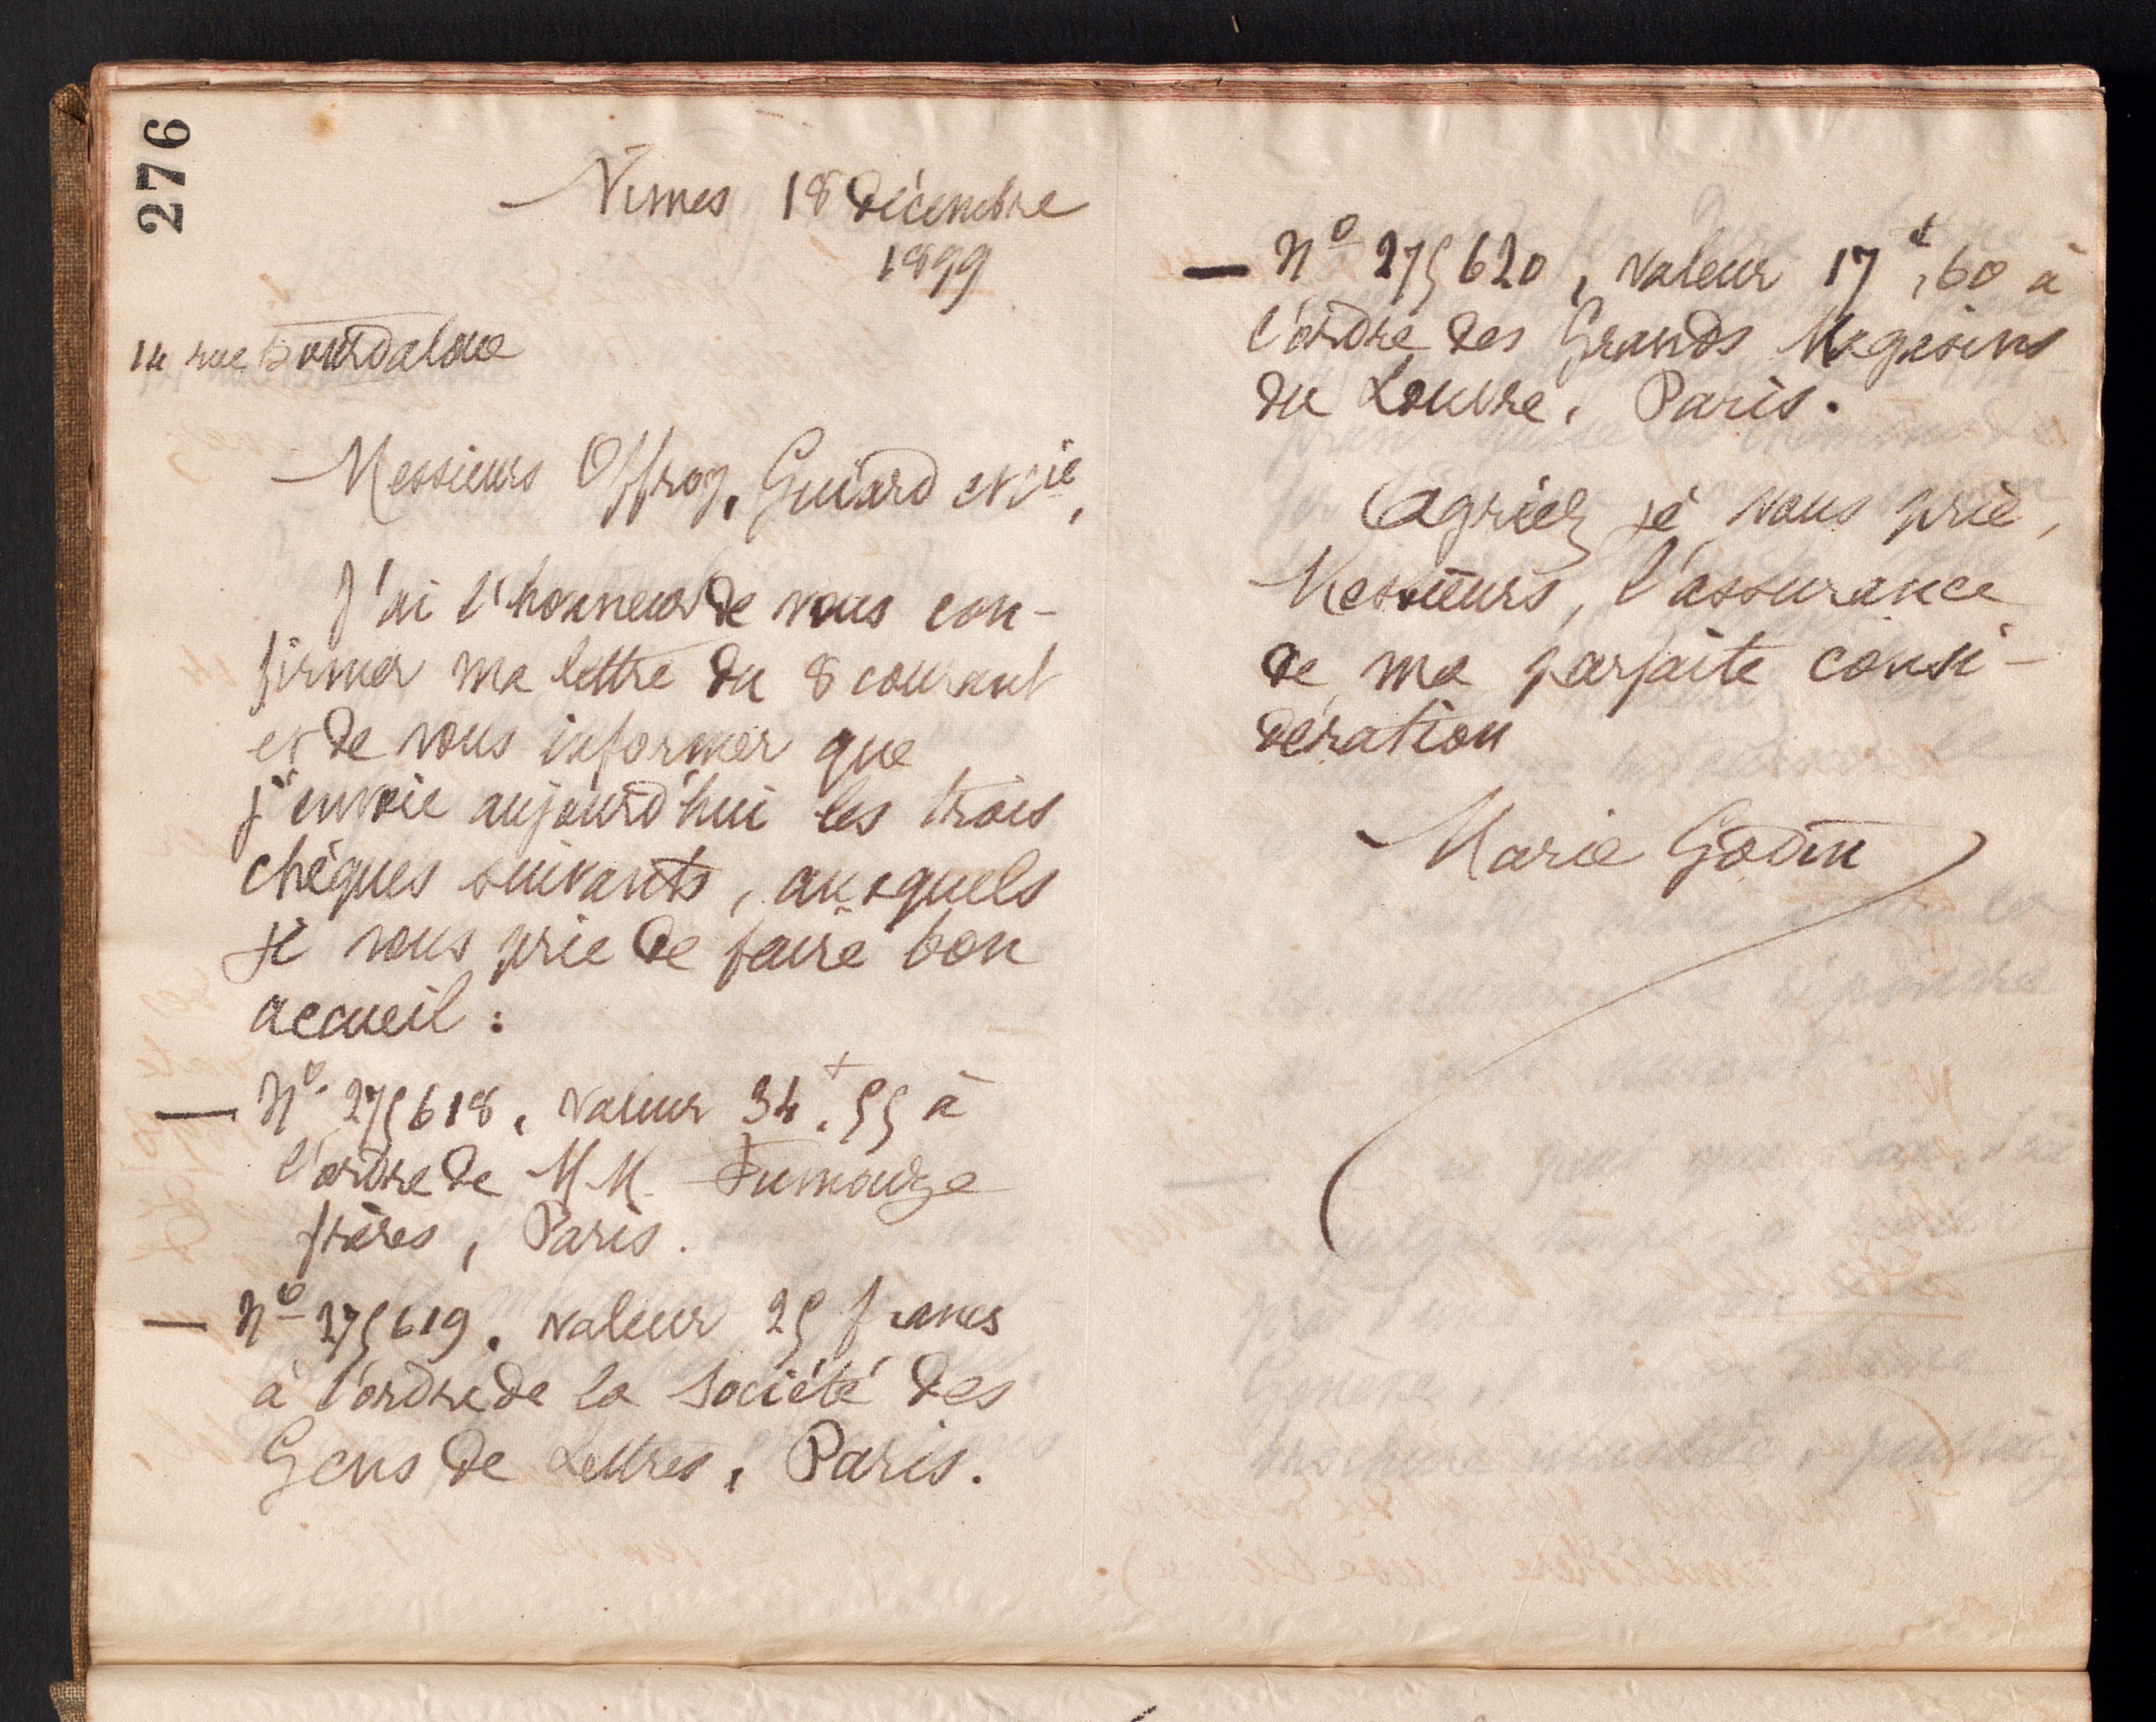 276
Nimes 18 décembre
1899
14 rue Bourdaloue
Messieurs Offroy, Guiard et Cie,
J'ai l'honneur de vous con-
firmer ma lettre du 8 courant
et de vous informer que
j'envoie aujourd'hui les trois
chèques suivants, auxquels
je vous prie de faire bon
accueil :
— No. 275618, valeur 34f.55 à
l'ordre de M M. Fumouze
frères, Paris.
— No 275619. valeur 25 francs
à l'ordre de la Société des
Gens de Lettres, Paris.
— No 275620, valeur 17f,60 à
l'ordre des Grands Magasins
du Louvre, Paris.
Agréez je vous prie,
Messieurs, l'assurance
de ma parfaite consi-
dération
Marie Godin